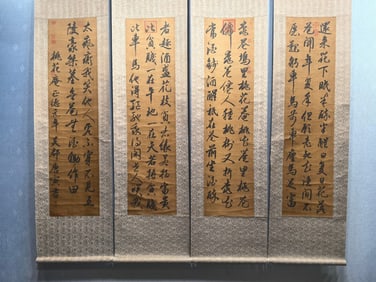 還來花下眠半醉半醒日復日花落
花開年復年但願老死花酒間不
願鞠躬車馬前車塵馬足富
桃花塢裏桃花庵桃花庵裏桃花
僊桃花僊人種桃樹又折花枝
當酒錢酒醒只在花前坐酒醉
者趣酒盞花枝貧者緣若將富貴
比貧賤一在平地一在天若將貧賤
比車馬他得驅馳我得閒世人笑我
太風癲我笑他人看不穿不見五
陵豪傑墓無花無酒鋤作田
桃花庵 正德 年 吳郡唐寅書